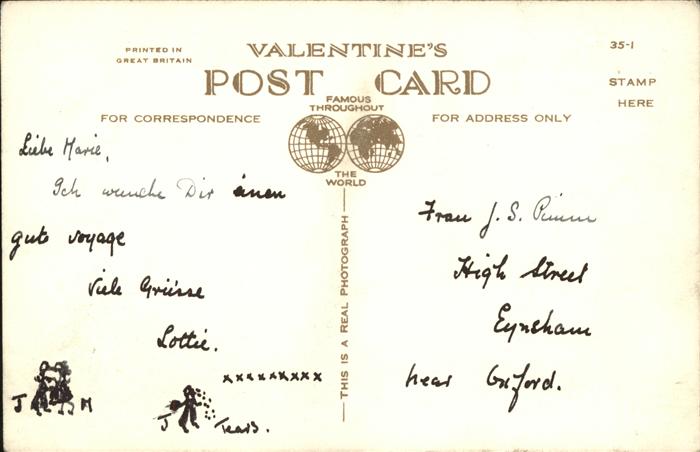 PRINTED IN
GREAT BRITAIN
VALENTINE'S
POST CARD
35-1
STAMP
HERE
FAMOUS
THROUGHOUT
THE
WORLD
FOR CORRESPONDENCE
FOR ADDRESS ONLY
THIS IS A REAL PHOTOGRAPH
Liebe Marie,
Ich wunche Dir einen
gute voyage
Viele Grüsse
Lottie.
xxxxxxxxx
J M
J Tears.
Frau J. S. Pimm
High Street
Eynsham
near Oxford.